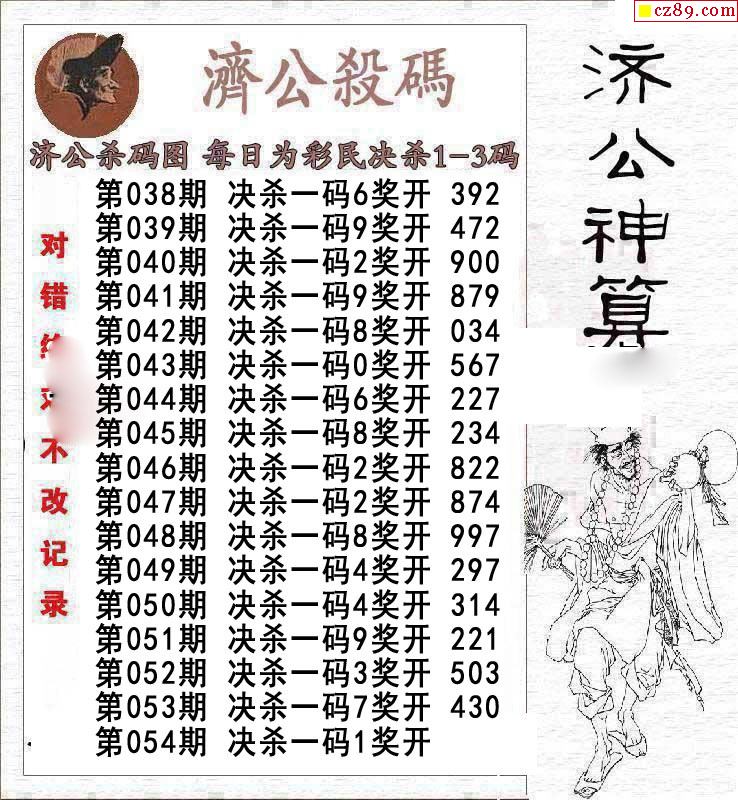 cz89.com
濟公殺碼
济公杀码图 每日为彩民决杀1-3码
第038期 决杀一码6奖开 392
第039期 决杀一码9奖开 472
第040期 决杀一码2奖开 900
第041期 决杀一码9奖开 879
第042期 决杀一码8奖开 034
第043期 决杀一码0奖开 567
第044期 决杀一码6奖开 227
第045期 决杀一码8奖开 234
第046期 决杀一码2奖开 822
第047期 决杀一码2奖开 874
第048期 决杀一码8奖开 997
第049期 决杀一码4奖开 297
第050期 决杀一码4奖开 314
第051期 决杀一码9奖开 221
第052期 决杀一码3奖开 503
第053期 决杀一码7奖开 430
第054期 决杀一码1奖开
对错不改记录
济公神算